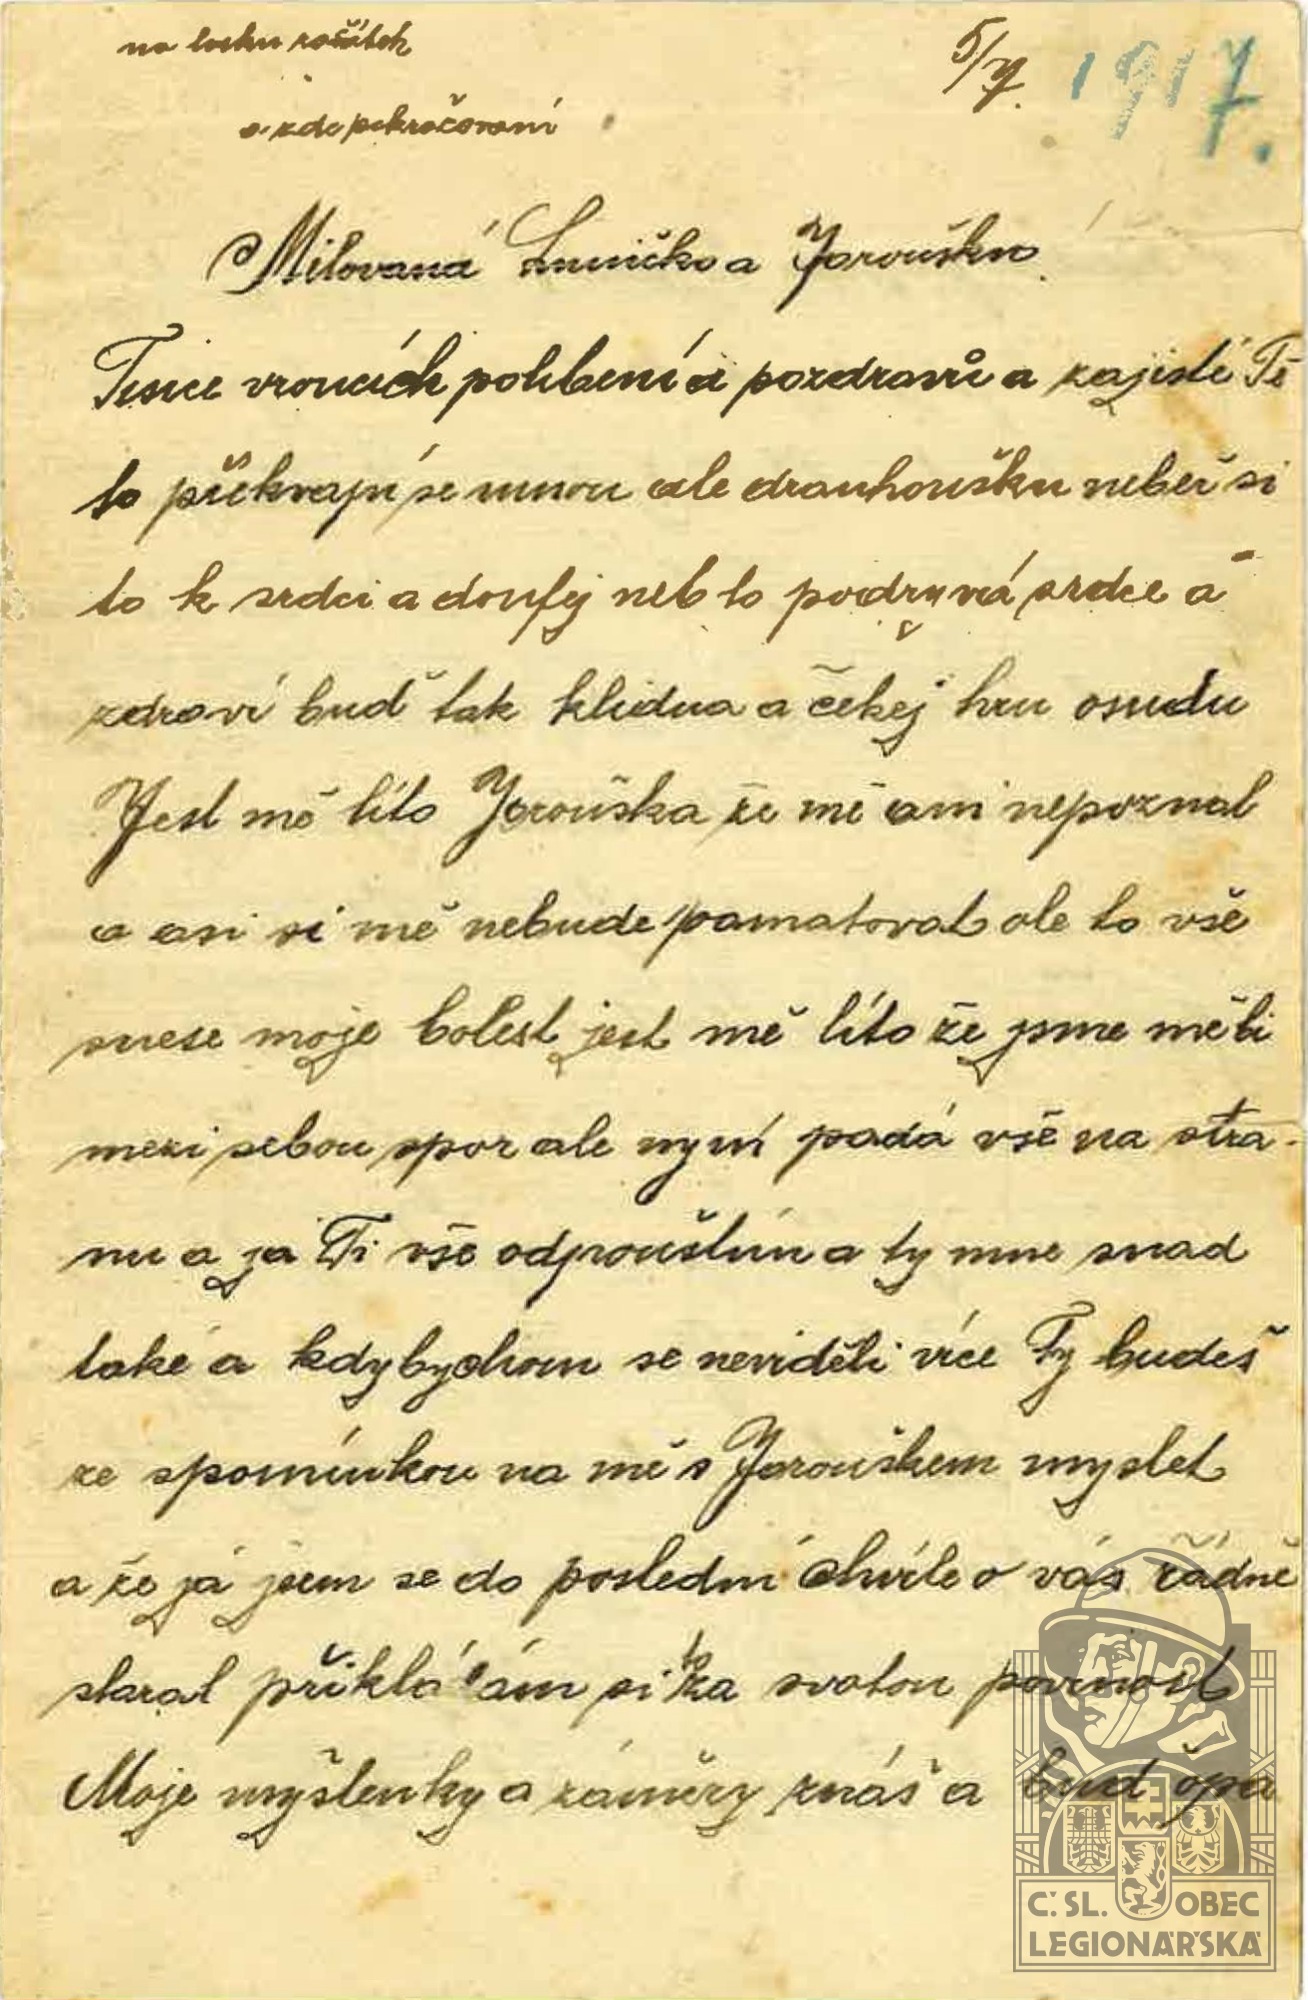 na lístku začátek
a zde pokračování
5/7. 1917.
Milovaná a Jaroušku
Tisíce vroucích políbení a pozdravů a zajisté Tě
to překvapí se mnou ale drahoušku neber si
to k srdci a doufej neb to podrývá srdce a
zdraví buď tak klidna a čekej hru osudu
Jest mě líto Jarouška že mě ani nepoznal
a ani si mě nebude pamatovat ale to vše
snese moje bolest jest mě líto že jsme měli
mezi sebou spor ale nyní padá vše na stra-
nu a já Ti vše odprouštím a ty mne snad
také a kdybychom se neviděli více Ty budeš
ze spomínkou na mě s Jarouškem myslet
a že já jsem se do poslední chvíle o vás řádně
staral přikládám si to za svatou povinost
Moje myšlenky a záměry znáš a bud opa
Č. SL. OBEC
LEGIONÁŘSKÁ